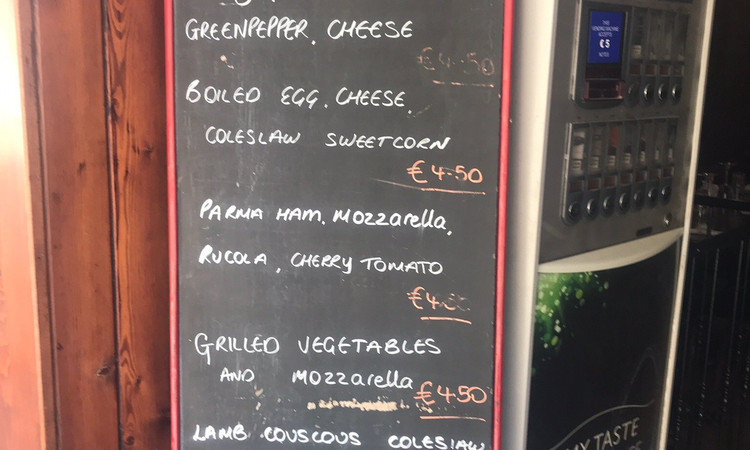 GREENPEPPER. CHEESE
€4.50
BOILED EGG. CHEESE.
COLESLAW SWEETCORN
€4.50
PARMA HAM. MOZZARELLA.
RUCOLA, CHERRY TOMATO
€4
GRILLED VEGETABLES
AND MOZZARELLA €4.50
LAMB COUSCOUS COLESLAW
€5
TASTE